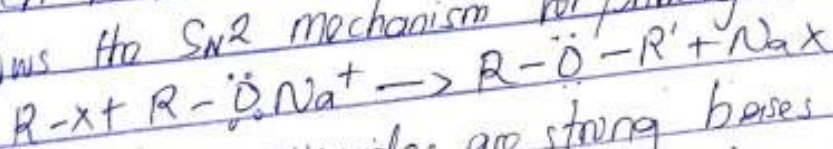 ws the SN2 mechanism for
R-x+ R-Ö:Na+ —> R-Ö-R'+Nax
are strong bases